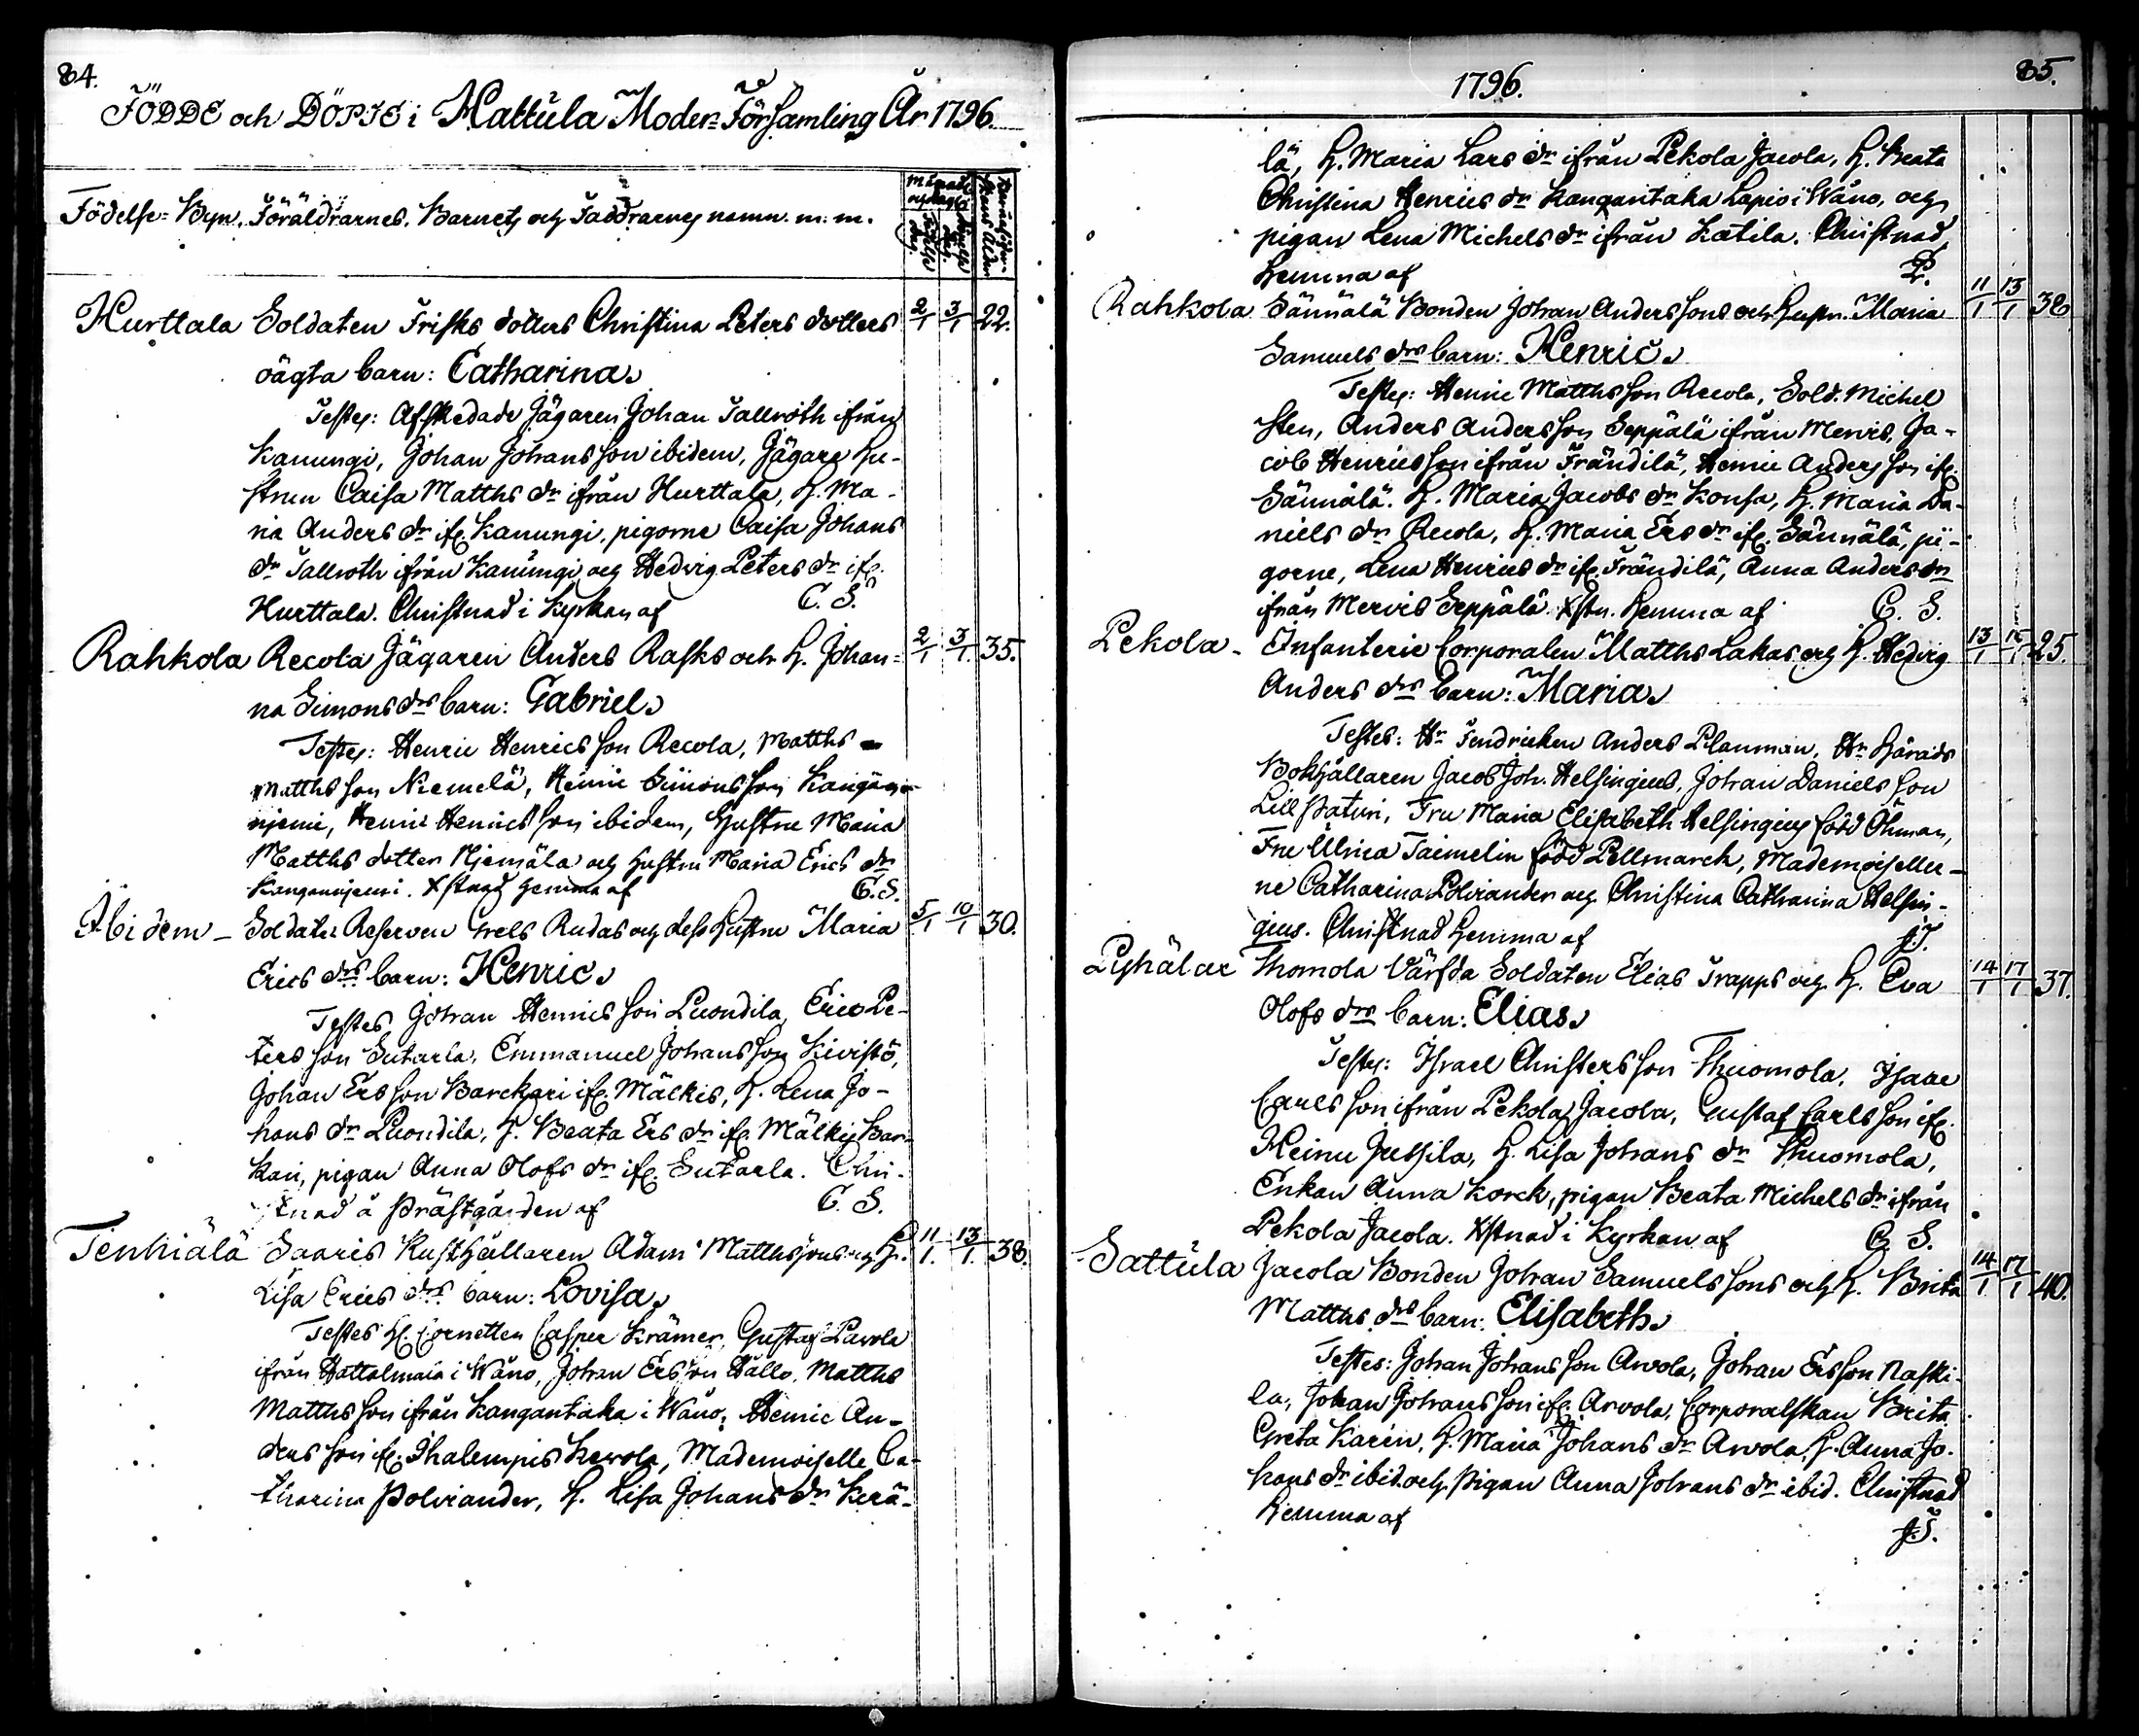 84.
FÖDDE och DÖPTE i Hattula Moder- Församling År 1796.
Födelse- Byn, Föräldrarnes, Barnets och Faddrarnes namn. m: m.
Hurttala Soldaten Frisks dotters Christina Peters dotters 2/1 3/1 22.
oägta barn: Catharina.
Testes: Afskedade Jägaren Johan Tallroth ifrån
Kanungi, Johan Johansson ibidem, Jägare Hu-
strun Caisa Matths dr ifrån Hurttala, H. Ma-
ria Anders dr ifr. Kanungi, pigorne Caisa Johans
dr Tallroth ifrån Kanungi och Hedvig Peters dr ifr.
Hurttala. Christnad i Kyrkan af C. S.
Rahkola Recola Jägaren Anders Rasks och H. Johan- 2/1 3/1 35.
na Simons drs barn: Gabriel.
Testes: Henric Henricsson Recola, Matths
Matthsson Niemelä, Henric Simonsson
niemi, Henric Henricsson ibidem, Hustru Maria
Matths dotter och Hustru Maria Erics dr
Xstnad hemma af C. S.
Ibidem - Soldate Reserven Grels Rudas och dess Hustru Maria 5/1 10/1 30.
Erics drs barn: Henric.
Testes Johan Henricsson Luondila, Eric Pe-
tersson Sutarla, Emmanuel Johansson Kivistö,
Johan Ersson Barckari ifr. Mälkis, H. Lena Jo-
hans dr Luondila, H. Beata Ers dr ifr. Mälkis Bar-
kari, pigan Anna Olofs dr ifr. Sutarla. Chri-
stnad å Prästgården af C. S.
Tenhiälä Saaris Rusthållaren Adam Matthssons och H. 11/1. 13/1. 38.
Lisa Erics drs barn: Lovisa.
Testes H. Cornetten Casper Krämer, Gustaf Pavola
ifrån Hattelmala i Wåno, Johan Ersson Hällo, Matths
Matthsson ifrån Kangantaka i Wåno, Henric An-
dersson ifr. Ihalempis Kerola, Mademoiselle Ca-
tharina Polviander, H. Lisa Johans dr Kerä-
1796. 85.
lä, H. Maria Lars dr ifrån Pekola Jacola, H. Beata
Christina Henrics dr Kangantaka Lapio i Wåno, och
pigan Lena Michels dr ifrån Katila. Christnad
hemma af P.
Rahkola Sännälä Bonden Johan Anderssons och Hustr. Maria 11/1 13/1 38
Samuels drs barn: Henric.
Testes: Henric Matthsson Recola, Sold. Michel
Sten, Anders Andersson Seppälä ifrån Mervis, Ja-
cob Henricsson ifrån Frändilä, Henric Andersson ifr.
Sännälä. H. Maria Jacobs dr Konsa, H. Maria Da-
niels dr Recola, H. Maria Ers dr ifr. Sännälä, pi-
gorne, Lena Henrics dr ifr. Frändilä, Anna Anders dr
ifrån Mervis Seppälä. Xstn. hemma af C. S.
Pekola - Infanterie Corporalen Matths Lakas och H. Hedvig 13/1 25.
Anders drs barn: Maria.
Testes: Hr Fendricken Anders Planman, Hr Härads
Bokhållaren Jacob Joh. Helsingius, Johan Danielsson
Lill Paturi, Fru Maria Elisabeth Helsingius född Öhman,
Fru Ulrica Taimelin född Pellmarck, Mademoiseller-
ne Catharina Polviander och Christina Catharina Helsin-
gius. Christnad hemma af J. T.
Pyhälae Thomola Värfda Soldaten Elias Trapps och H. Eva 14/1 17/1 37.
Olofs drs barn: Elias.
Testes: Israel Christersson Thuomola, Isaac
Carlsson ifrån Pekola Jacola, Gustaf Carlsson ifr.
Heinu Jussila, H. Lisa Johans dr Thuomola,
Enkan Anna Korck, pigan Beata Michels dr ifrån
Pekola Jacola. Xstnad i Kyrkan af C. S.
Sattula Jacola Bonden Johan Samuelssons och H. Brita 14/1 17/1 40.
Matths drs barn: Elisabeth.
Testes: Johan Johansson Arvola, Johan Ersson Naski-
la, Johan Johansson ifr. Arvola, Corporalskan Brita
Greta Karin, H. Maria Johans dr Arvola, H. Anna Jo-
hans dr ibid. och Pigan Anna Johans dr ibid. Christnad
hemma af J. T.